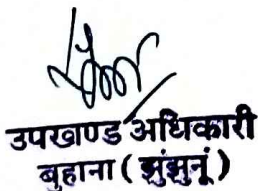 उपखण्ड अधिकारी
बुहाना ( झुंझुनूं )